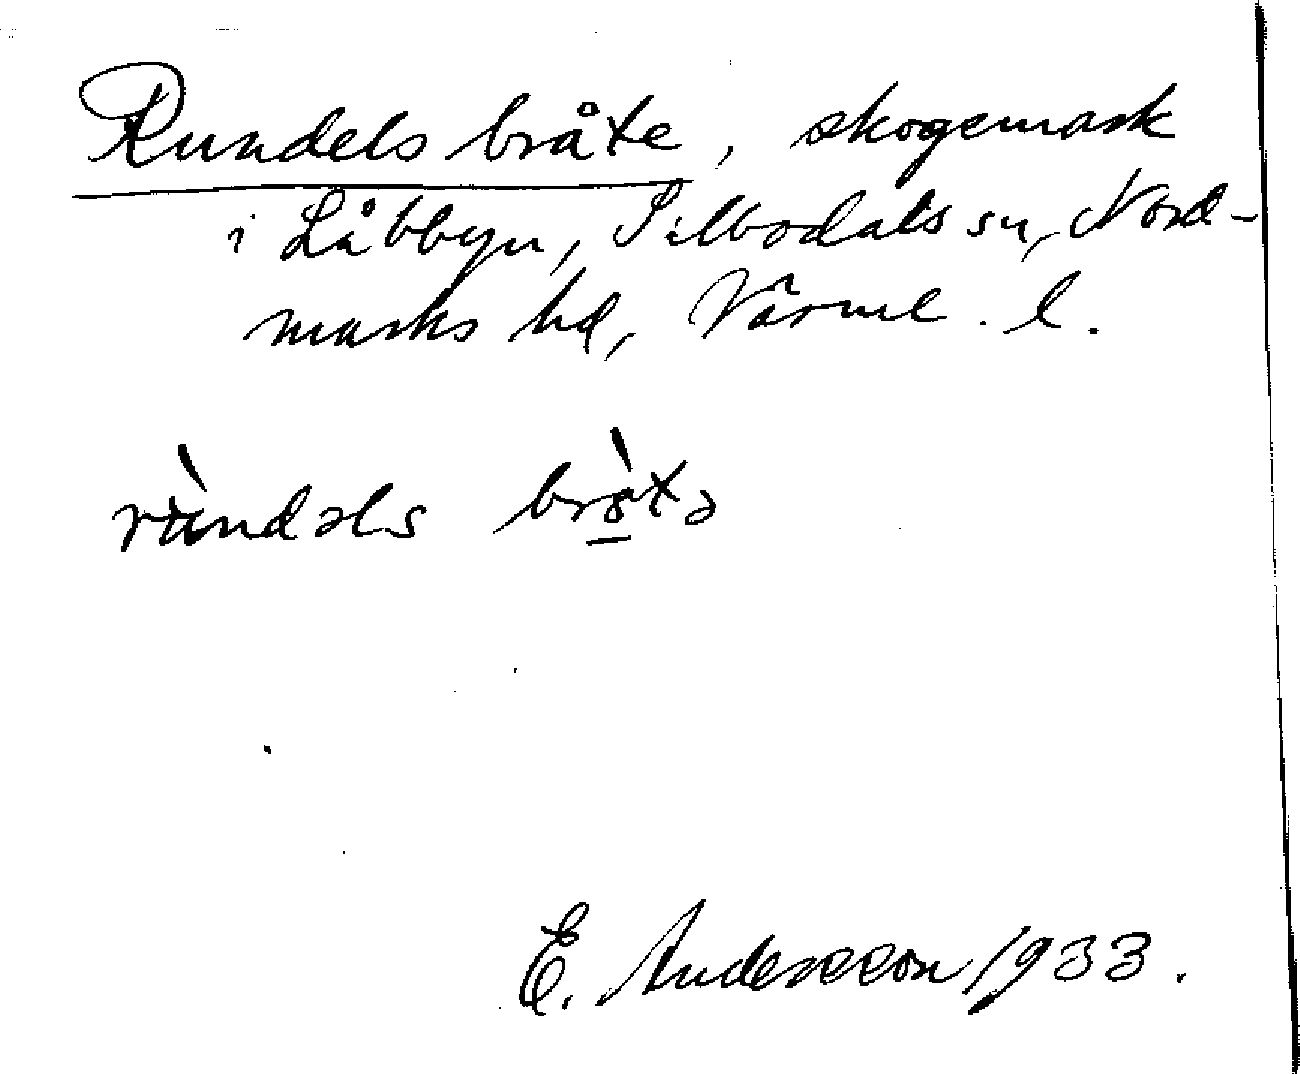 Rundelsbråte, skogsmark
i Låbbyn, Silbodals sn, Nord-
marks hd, Värml. l.
rùndəls bròtə
E. Andersson 1933.